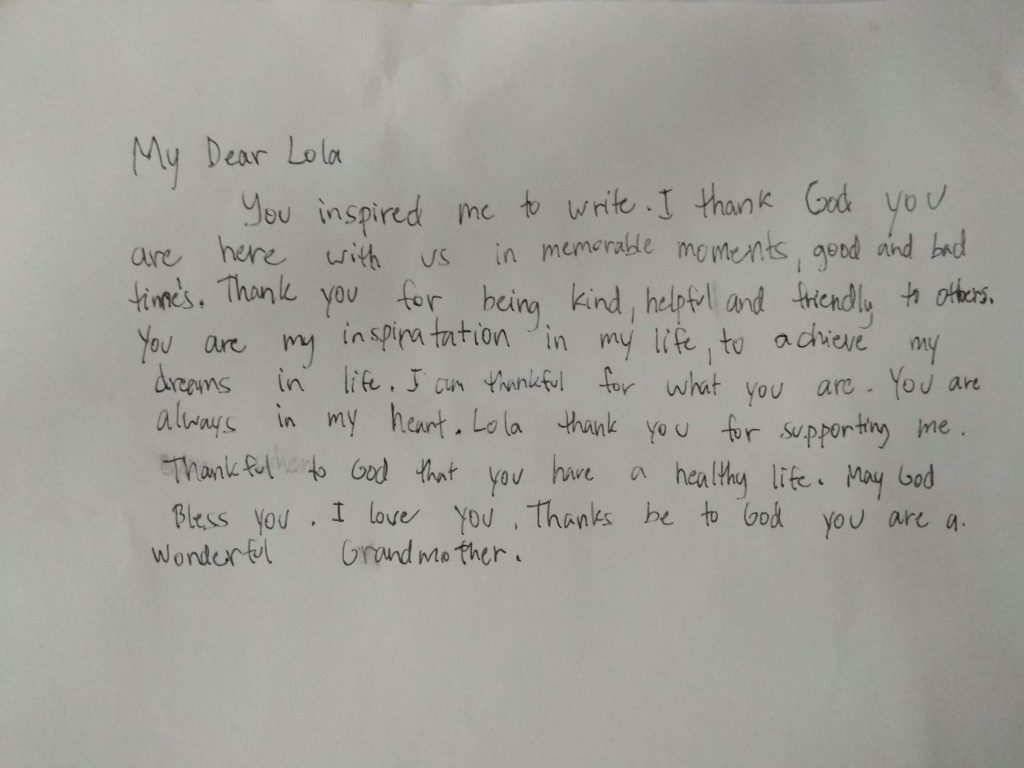 My Dear Lola
You inspired me to write. I thank God you
are here with us in memorable moments, good and bad
time's. Thank you for being kind, helpful and friendly to others.
You are my inspiratation in my life, to achieve my
dreams in life. I am thankful for what you are. You are
always in my heart. Lola thank you for supporting me.
Thankful to God that you have a healthy life. May God
Bless you. I love you. Thanks be to God you are a.
wonderful Grandmother.